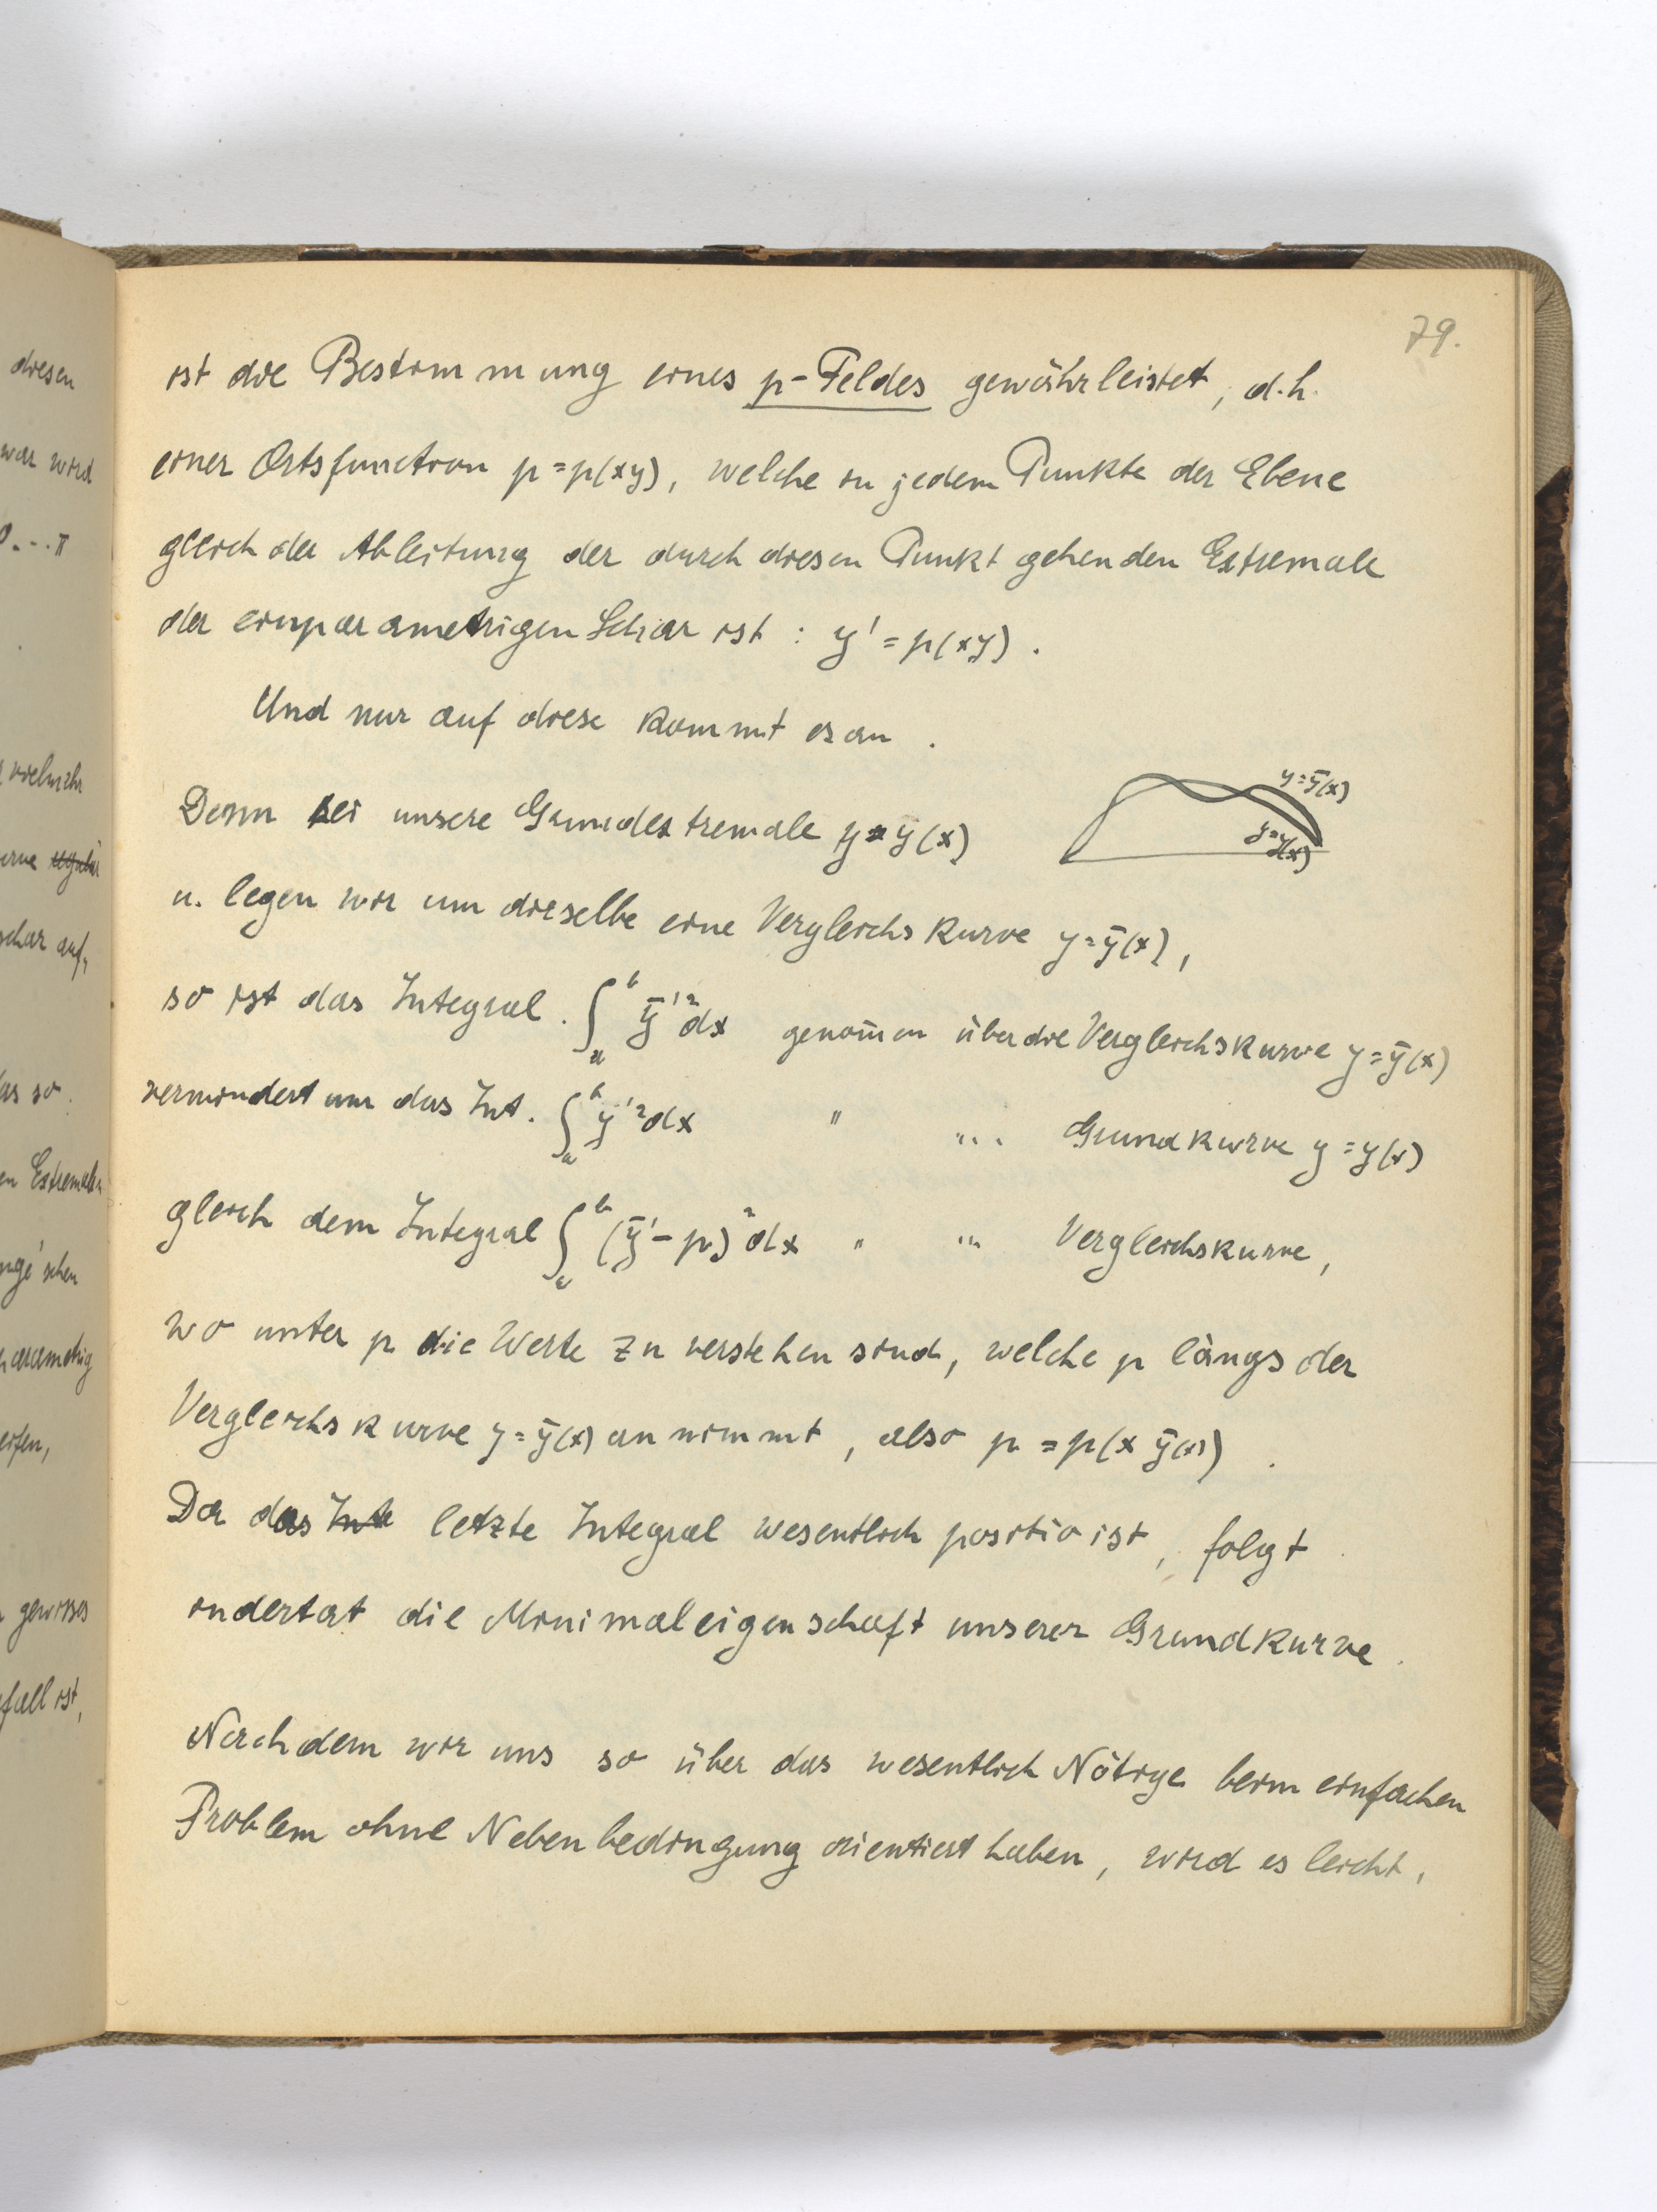 79.
ist die Bestimmung eines p-Feldes gewährleistet, d.h.
einer Ortsfunction p=p(xy), welche in jedem Punkte der Ebene
gleich der Ableitung der durch diesen Punkt gehenden Extremale
der einparametrigen Schar ist: y'=p(xy).
Und nur auf diese kommt es an.
Denn sei unsere Grundextremale y=y(x)
y=ȳ(x)
y=y(x)
u. legen wir um dieselbe eine Vergleichskurve y=ȳ(x),
so ist das Integral ∫ₐᵇ ȳ'²dx genom̄en über die Vergleichskurve y=ȳ(x)
vermindert um das Int. ∫ₐᵇ y'²dx " "" Grundkurve y=y(x)
gleich dem Integral ∫ₐᵇ (ȳ'-p)²dx " "" Vergleichskurve,
wo unter p die Werte zu verstehen sind, welche p längs der
Vergleichskurve y=ȳ(x) annimmt, also p=p(x ȳ(x)).
Da das Inte letzte Integral wesentlich positiv ist, folgt
indertat die Minimaleigenschaft unserer Grundkurve.
Nachdem wir uns so über das wesentlich Nötige beim einfachen
Problem ohne Nebenbedingung orientiert haben, wird es leicht,
diesen
war wird
0...π
vielmehr
schar auf,
as so.
en Extremalen
nge'schen
parametrig
eifen,
gewisses
fall ist,